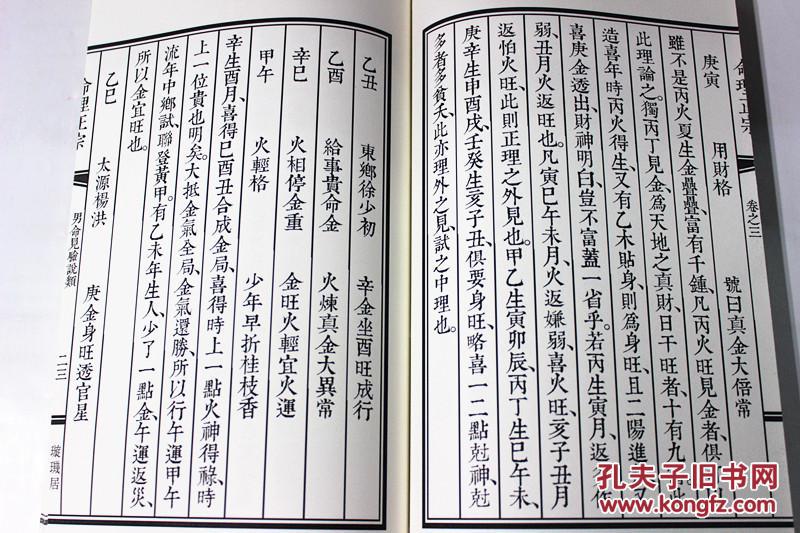 命理正宗
卷之三
庚寅 用財格 號曰真金大偣常
雖不是丙火夏生金疊疊富有千鍾凡丙火旺見金者俱
此理論之獨丙丁見金為天地之真財日干旺者十有九 此
造喜年時丙火得生又有乙木貼身則為身旺且二陽進 又
喜庚金透出財神明白豈不富蓋一省乎若丙生寅月返 作
弱丑月火返旺也凡寅巳午未月火返嫌弱喜火旺亥子丑月
返怕火旺此則正理之外見也甲乙生寅卯辰丙丁生巳午未
庚辛生申酉戌壬癸生亥子丑俱要身旺略喜一二點尅神尅
多者多貧夭此亦理外之見試之中理也
乙丑 東鄉徐少初 辛金坐酉旺成行
乙酉 給事貴命金 火煉真金大異常
辛巳 火相停金重 金旺火輕宜火運
甲午 火輕格 少年早折桂枝香
辛生酉月喜得巳酉丑合成金局喜得時上一點火神得祿時
上一位貴也明矣大抵金氣全局金氣還勝所以行午運甲午
流年中鄉試聯登黃甲有乙未年生人少了一點金午運返災
所以金宜旺也
乙巳 太源楊洪 庚金身旺透官星
命理正宗
男命見驗說類
二三
璇璣居
孔夫子旧书网
www.kongfz.com